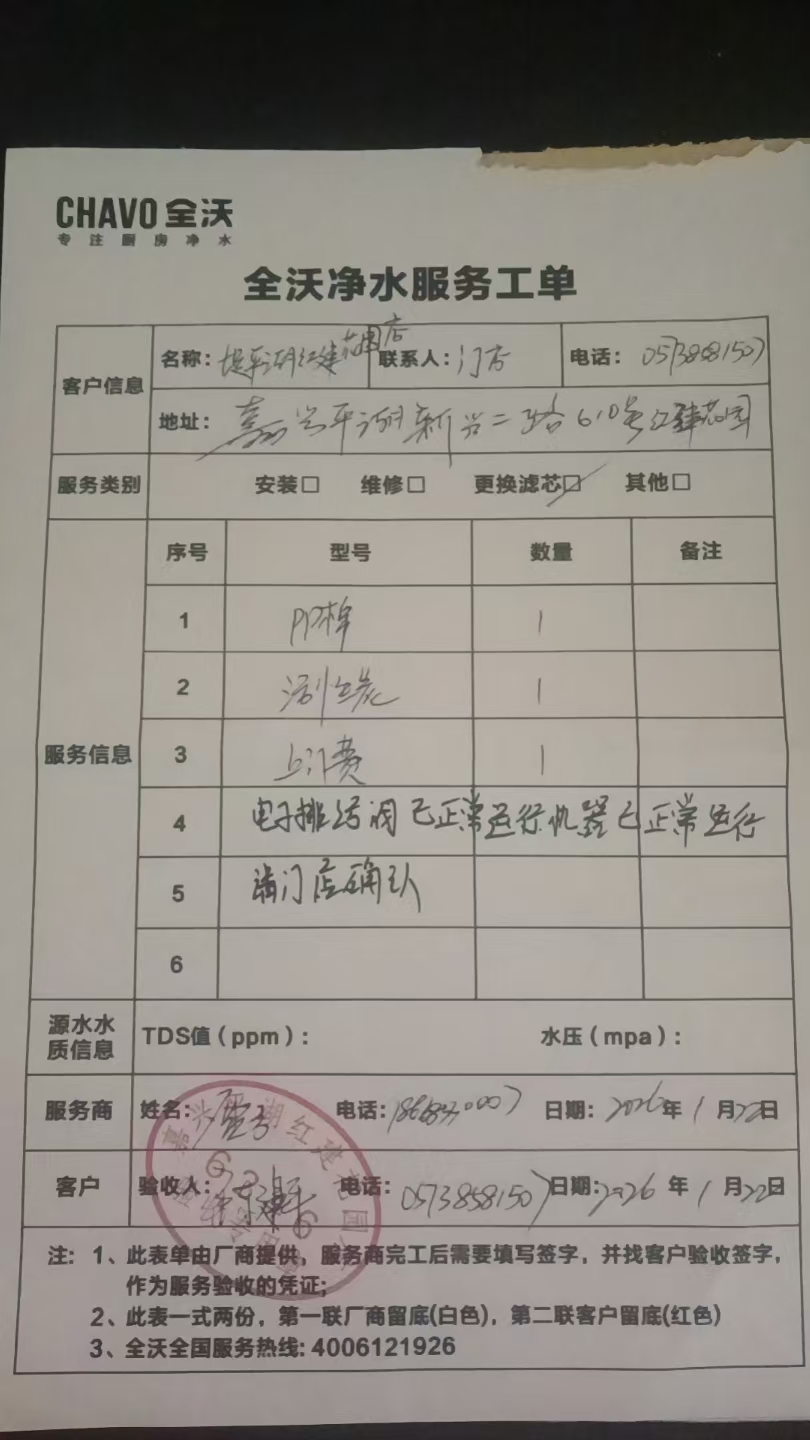 CHAVO 全沃
专注厨房净水
全沃净水服务工单
客户信息
名称: 平湖红建花园店 联系人: 门店 电话: 05738581507
地址: 嘉兴平湖新兴二路610号红建花园
服务类别 安装□ 维修□ 更换滤芯☑ 其他□
服务信息
序号 型号 数量 备注
1 PP棉 1
2 活性炭 1
3 上门费 1
4 电子排污阀已正常运行机器已正常运行
5 请门店确认
6
源水水质信息 TDS值(ppm): 水压(mpa):
服务商 姓名: 电话: 日期: 2026年1月22日
客户 验收人: 电话: 05738581507 日期: 2026年1月22日
嘉兴平湖红建花园
注: 1、此表单由厂商提供,服务商完工后需要填写签字,并找客户验收签字,
作为服务验收的凭证;
2、此表一式两份,第一联厂商留底(白色),第二联客户留底(红色)
3、全沃全国服务热线: 4006121926